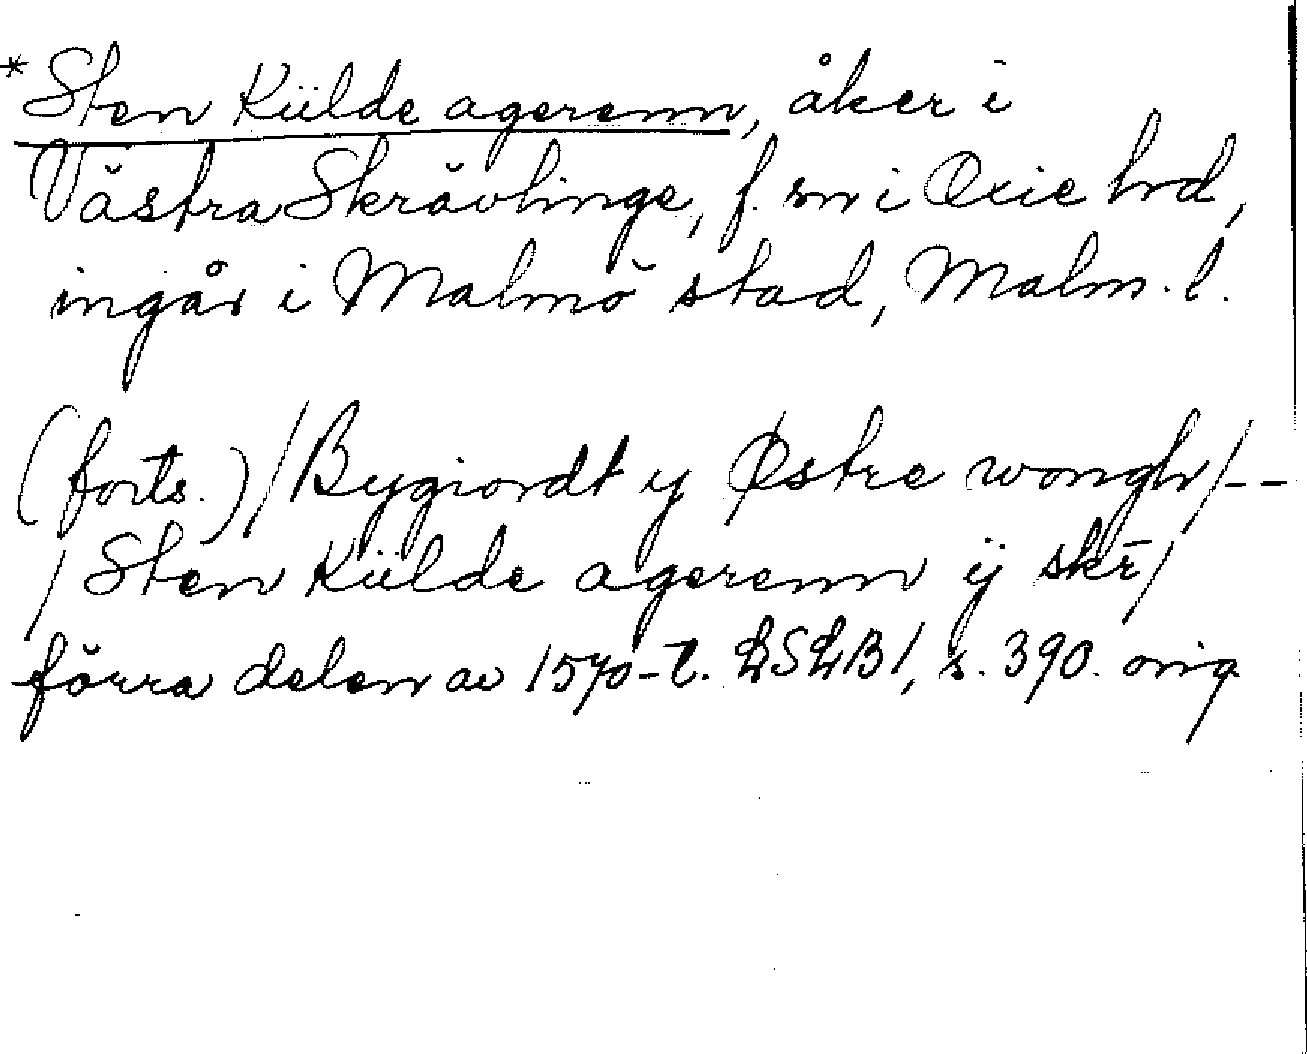 *Sten Külde agerenn, åker i
Västra Skrävlinge, f. sn i Oxie hd,
ingår i Malmö stad, Malm. l.
(forts.) /Bygiordt y Østre wongh/--
/Sten Külde agerenn ÿ skr̄/
förra delen av 1570-t. LSLB1, s. 390. orig.